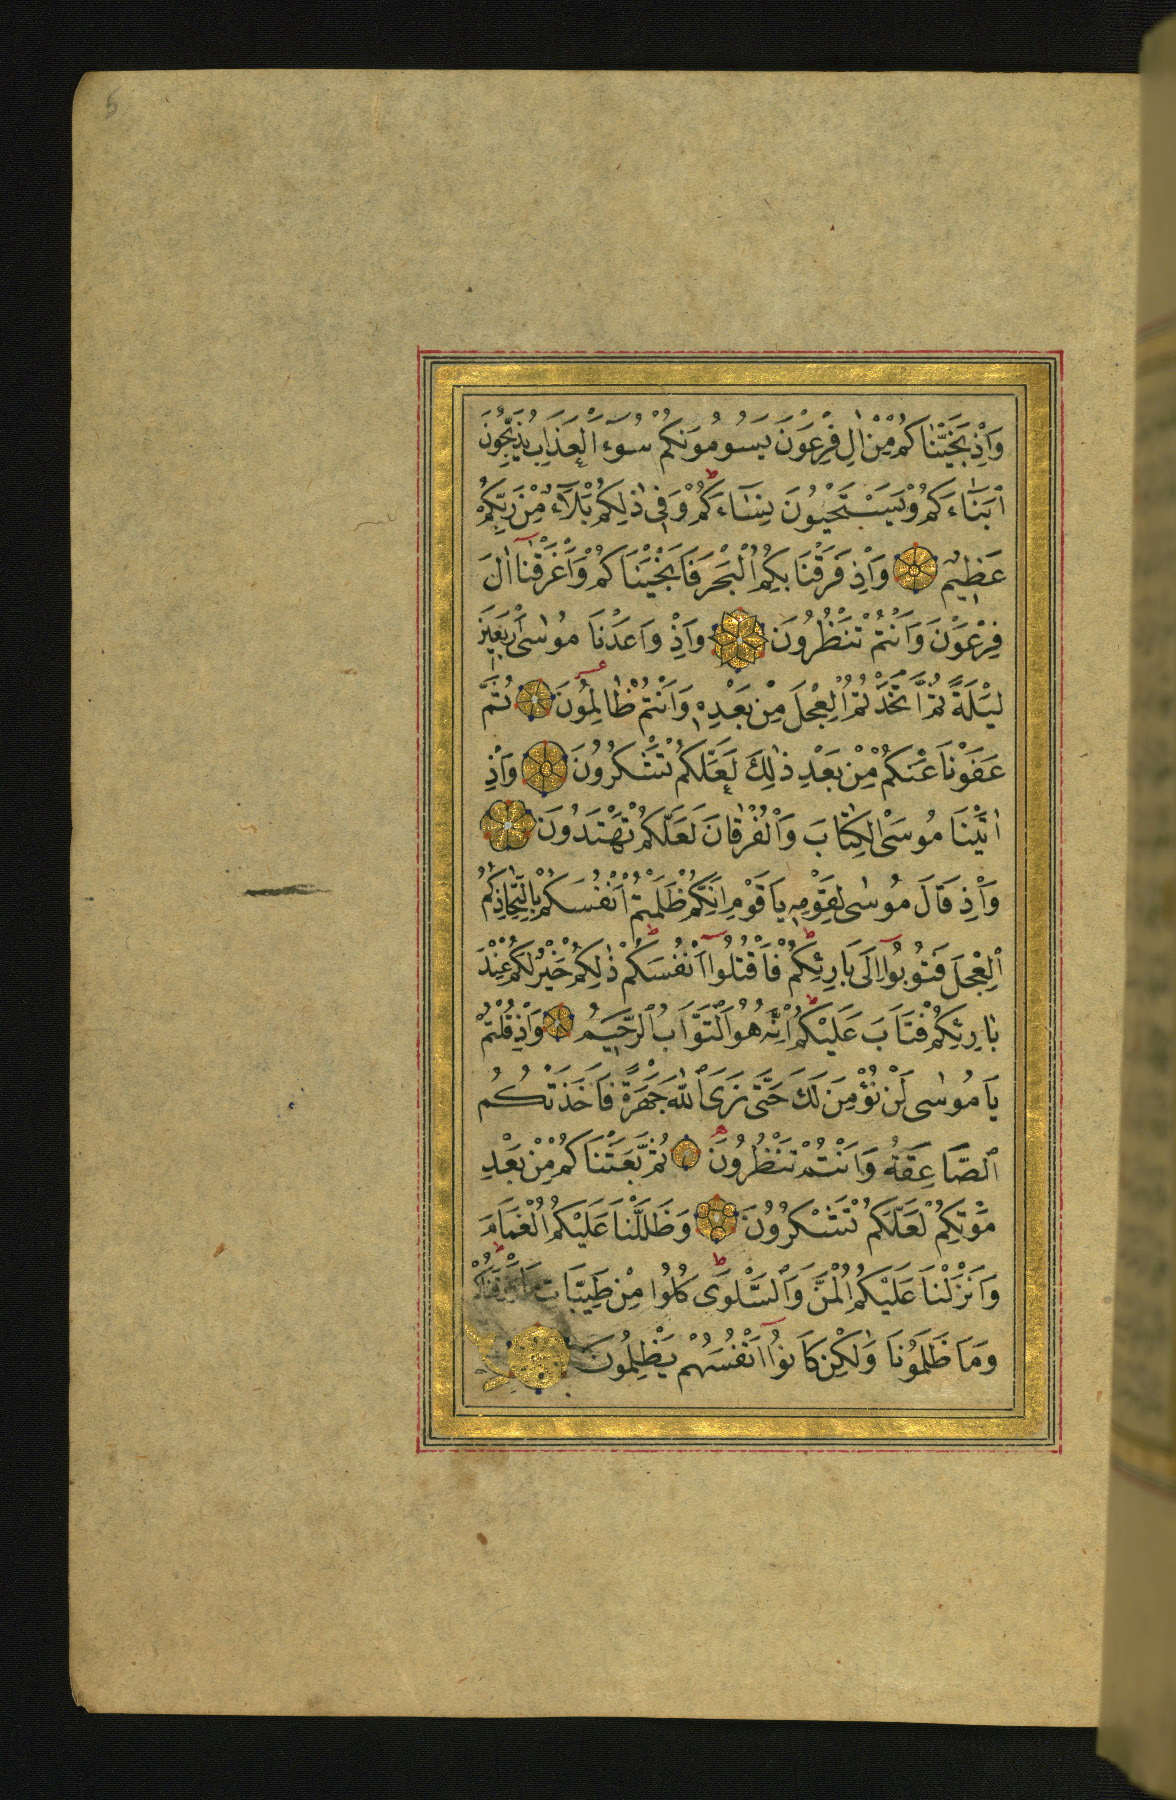 5
وَإِذْ نَجَّيْنَاكُمْ مِنْ اٰلِ فِرْعَوْنَ يَسُومُونَكُمْ سُوٓءَ الْعَذَابِ يُذَبِّحُونَ
اَبْنَآءَكُمْ وَيَسْتَحْيُونَ نِسَآءَكُمْ وَفِى ذٰلِكُمْ بَلَآءٌ مِنْ رَبِّكُمْ
عَظِيمٌ وَاِذْ فَرَقْنَا بِكُمُ الْبَحْرَ فَاَنْجَيْنَاكُمْ وَاَغْرَقْنَآ اٰلَ
فِرْعَوْنَ وَاَنْتُمْ تَنْظُرُونَ وَاِذْ وَاعَدْنَا مُوسٰٓى اَرْبَعِينَ
لَيْلَةً ثُمَّ اتَّخَذْتُمُ الْعِجْلَ مِنْ بَعْدِهِ وَاَنْتُمْ ظَالِمُونَ ثُمَّ
عَفَوْنَا عَنْكُمْ مِنْ بَعْدِ ذٰلِكَ لَعَلَّكُمْ تَشْكُرُونَ وَاِذْ
اٰتَيْنَا مُوسَى الْكِتَابَ وَالْفُرْقَانَ لَعَلَّكُمْ تَهْتَدُونَ
وَاِذْ قَالَ مُوسٰى لِقَوْمِهِ يَا قَوْمِ اِنَّكُمْ ظَلَمْتُمْ اَنْفُسَكُمْ بِاتِّخَاذِكُمُ
الْعِجْلَ فَتُوبُوٓا اِلٰى بَارِئِكُمْ فَاقْتُلُوٓا اَنْفُسَكُمْ ذٰلِكُمْ خَيْرٌ لَكُمْ عِنْدَ
بَارِئِكُمْ فَتَابَ عَلَيْكُمْ اِنَّهُ هُوَ التَّوَّابُ الرَّحِيمُ وَاِذْ قُلْتُمْ
يَا مُوسٰى لَنْ نُؤْمِنَ لَكَ حَتّٰى نَرَى اللّٰهَ جَهْرَةً فَاَخَذَتْكُمُ
الصَّاعِقَةُ وَاَنْتُمْ تَنْظُرُونَ ثُمَّ بَعَثْنَاكُمْ مِنْ بَعْدِ
مَوْتِكُمْ لَعَلَّكُمْ تَشْكُرُونَ وَظَلَّلْنَا عَلَيْكُمُ الْغَمَامَ
وَاَنْزَلْنَا عَلَيْكُمُ الْمَنَّ وَالسَّلْوٰى كُلُوا مِنْ طَيِّبَاتِ مَا رَزَقْنَاكُمْ
وَمَا ظَلَمُونَا وَلٰكِنْ كَانُوٓا اَنْفُسَهُمْ يَظْلِمُونَ